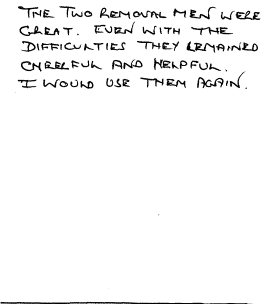 THE TWO REMOVAL MEN WERE
GREAT. EVEN WITH THE
DIFFICULTIES THEY REMAINED
CHEERFUL AND HELPFUL.
I WOULD USE THEM AGAIN.